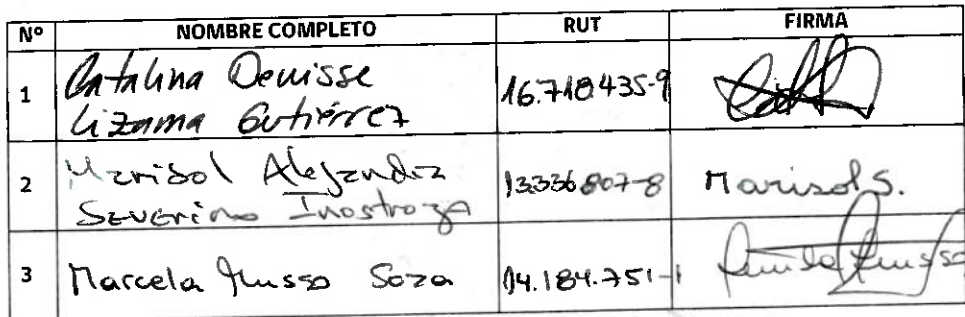 Nº NOMBRE COMPLETO RUT FIRMA
1 Catalina Denisse
Lizama Gutiérrez 16.718.435-9
2 Marisol Alejandra
Severino Inostroza 13.336.807-8 Marisol S.
3 Marcela Musso Soza 14.184.751-1